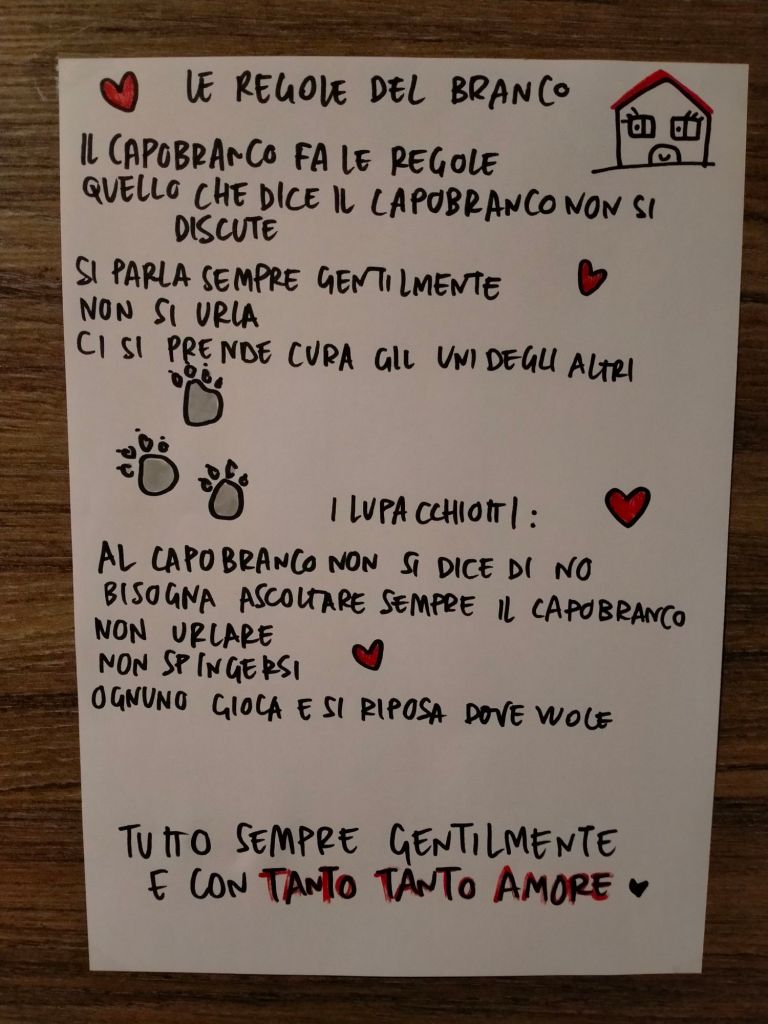 LE REGOLE DEL BRANCO
IL CAPOBRANCO FA LE REGOLE
QUELLO CHE DICE IL CAPOBRANCO NON SI
DISCUTE
SI PARLA SEMPRE GENTILMENTE
NON SI URLA
CI SI PRENDE CURA GLI UNI DEGLI ALTRI
I LUPACCHIOTTI:
AL CAPOBRANCO NON SI DICE DI NO
BISOGNA ASCOLTARE SEMPRE IL CAPOBRANCO
NON URLARE
NON SPINGERSI
OGNUNO GIOCA E SI RIPOSA DOVE VUOLE
TUTTO SEMPRE GENTILMENTE
E CON TANTO TANTO AMORE